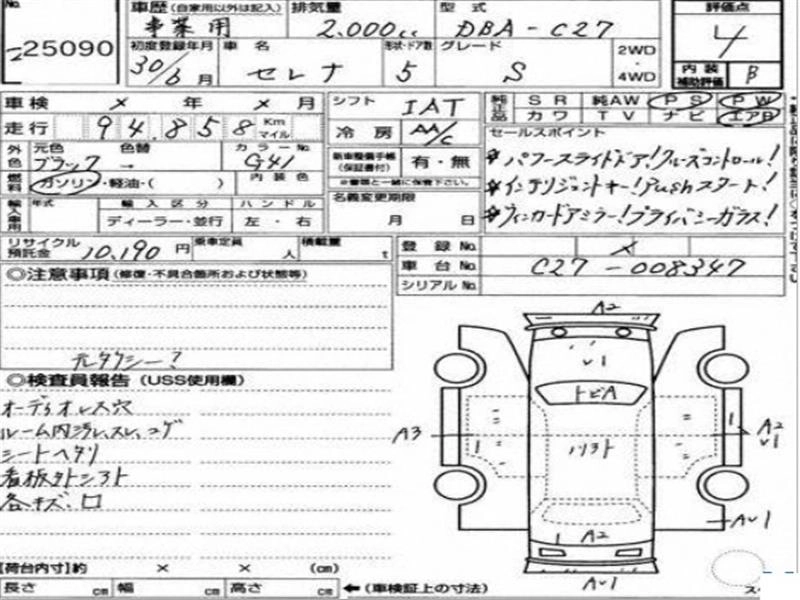 No. 25090
車歴 (自家用以外は記入) 事業用
排気量 2,000cc
型式 DBA-C27
評価点 4
初度登録年月 30/6月
車名 セレナ
形状・ドア数 5
グレード S
2WD・4WD
内装補助評価 B
車検 × 年 × 月
走行 94,858 Km マイル
シフト IAT
冷房 AA/C
純正品 SR 純AW PS PW
カワ TV ナビ エアB
外色 元色 ブラック 色替 →
カラーNo. G41
内装色
燃料 ガソリン・軽油・( )
新車整備手帳(保証書付) 有・無
※書類と一緒に保管下さい。
名義変更期限 月 日
セールスポイント
#パワースライドドア!クルーズコントロール!
#インテリジェントキー!Pushスタート!
#ウィンカードアミラー!プライバシーガラス!
輸入車用 年式 輸入区分 ハンドル
ディーラー・並行 左・右
リサイクル預託金 10,190円
乗車定員 人
積載量 t
登録No. ×
車台No. C27-008347
シリアルNo.
◎注意事項(修復・不具合箇所および状態等)
元タクシー?
◎検査員報告(USS使用欄)
オーディオレス穴
ルーム内汚レ、スレ、コゲ
シートヘタリ
看板外シ外ト
各キズ、凹
A2
V1
トビA
ソリ外ト
A3
A2
V1
A2
AV1
AV1
【荷台内寸】約 × × (cm)
長さ cm 幅 cm 高さ cm ←(車検証上の寸法)